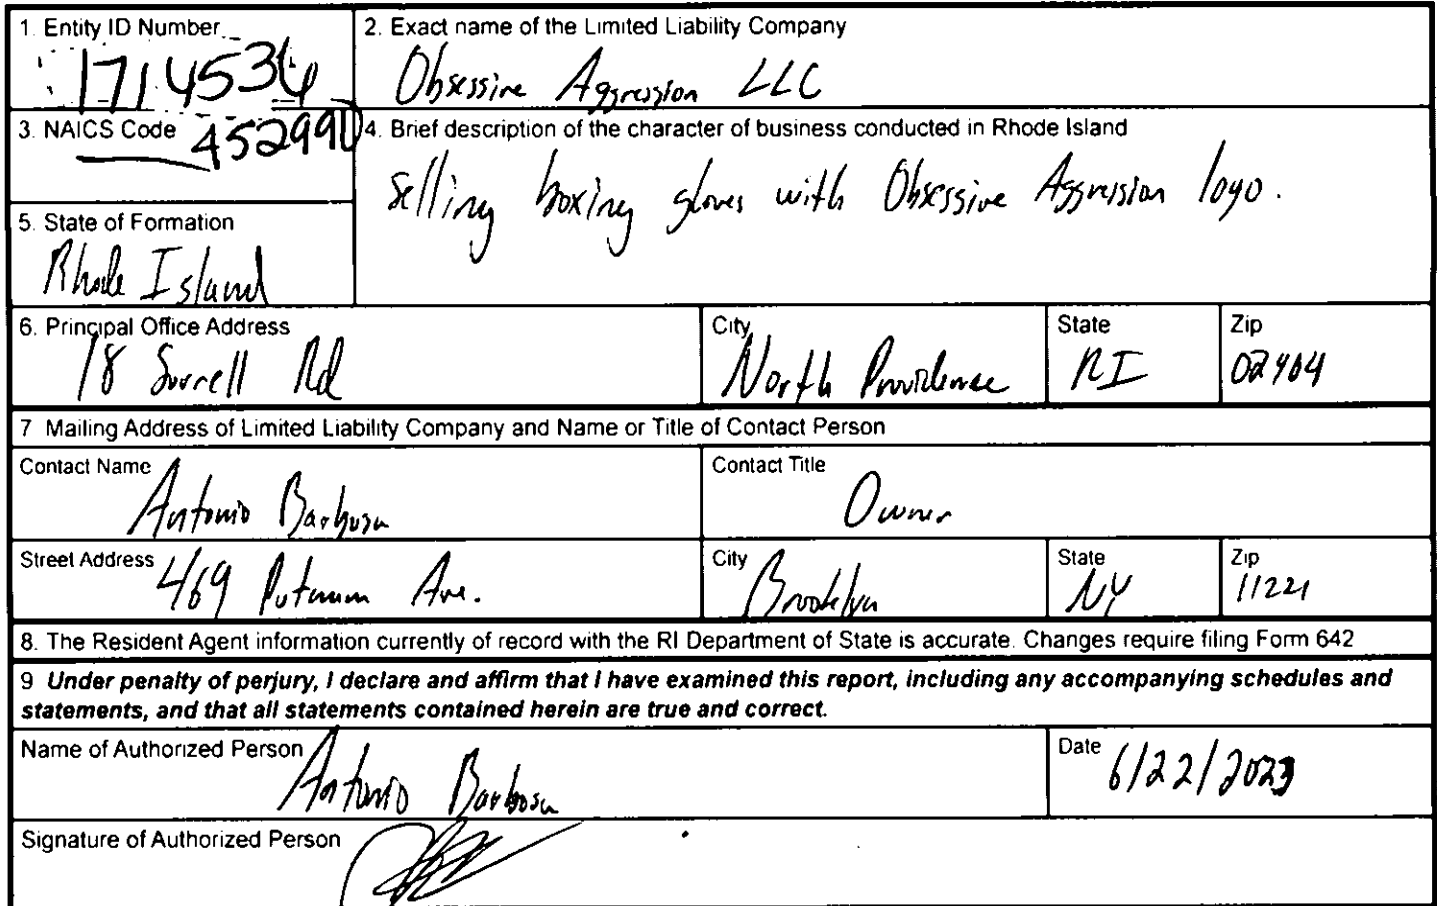 1. Entity ID Number
1714536
2. Exact name of the Limited Liability Company
Obsessive Aggression LLC
3. NAICS Code 452990
4. Brief description of the character of business conducted in Rhode Island
Selling boxing gloves with Obsessive Aggression logo.
5. State of Formation
Rhode Island
6. Principal Office Address
18 Sorrell Rd
City
North Providence
State
RI
Zip
02904
7 Mailing Address of Limited Liability Company and Name or Title of Contact Person
Contact Name
Antonio Barbosa
Contact Title
Owner
Street Address
469 Putnam Ave.
City
Brooklyn
State
NY
Zip
11221
8. The Resident Agent information currently of record with the RI Department of State is accurate. Changes require filing Form 642
9 Under penalty of perjury, I declare and affirm that I have examined this report, including any accompanying schedules and
statements, and that all statements contained herein are true and correct.
Name of Authorized Person
Antonio Barbosa
Date 6/22/2023
Signature of Authorized Person